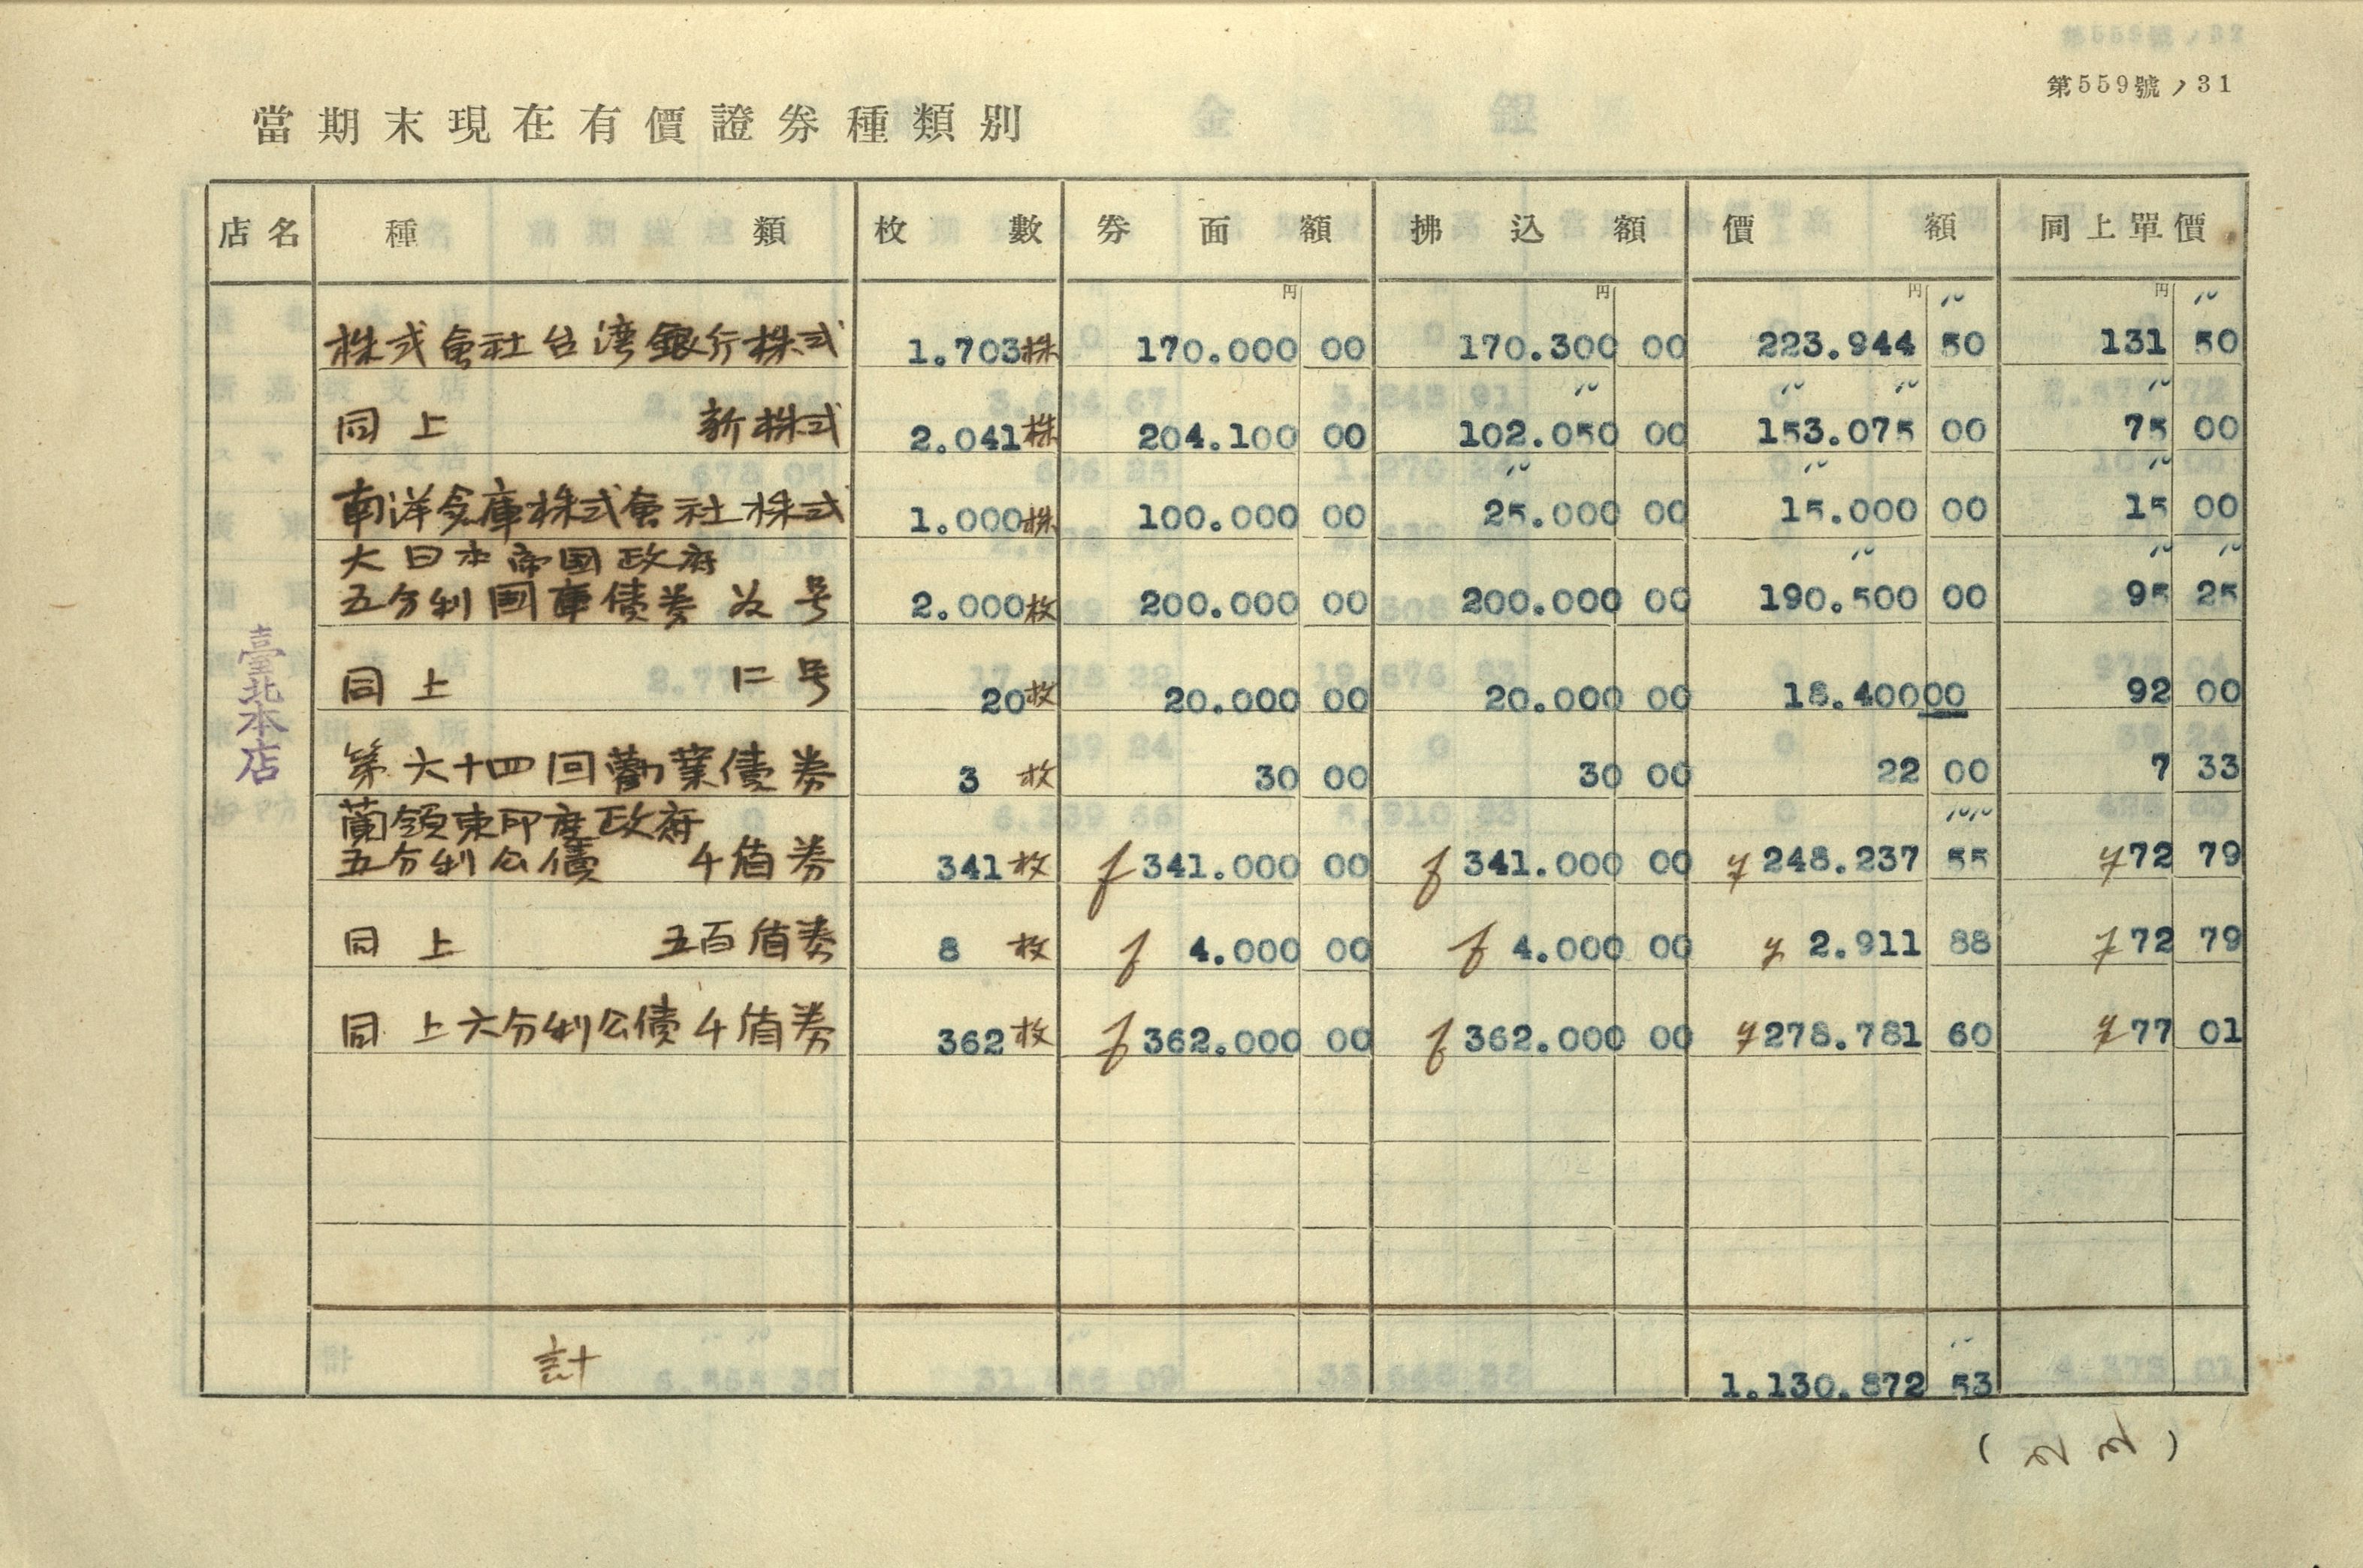 第559號ノ31
當期末現在有價證券種類別
店名 種類 枚數 券面額 拂込額 價額 同上單價
円 円 円 円
臺北本店
株式會社台湾銀行株式 1.703株 170.000 00 170.300 00 223.944 50 131 50
同上 新株式 2.041株 204.100 00 102.050 00 153.075 00 75 00
南洋倉庫株式會社株式 1.000株 100.000 00 25.000 00 15.000 00 15 00
大日本帝国政府
五分利國庫債券 号 2.000枚 200.000 00 200.000 00 190.500 00 95 25
同上 に号 20枚 20.000 00 20.000 00 18.400 00 92 00
第六十四回勸業債券 3枚 30 00 30 00 22 00 7 33
蘭領東印度政府
五分利公債 千盾券 341枚 f 341.000 00 f 341.000 00 248.237 55 72 79
同上 五百盾券 8枚 f 4.000 00 f 4.000 00 2.911 88 72 79
同上六分利公債千盾券 362枚 f 362.000 00 f 362.000 00 278.781 60 77 01
計 1.130.872 53